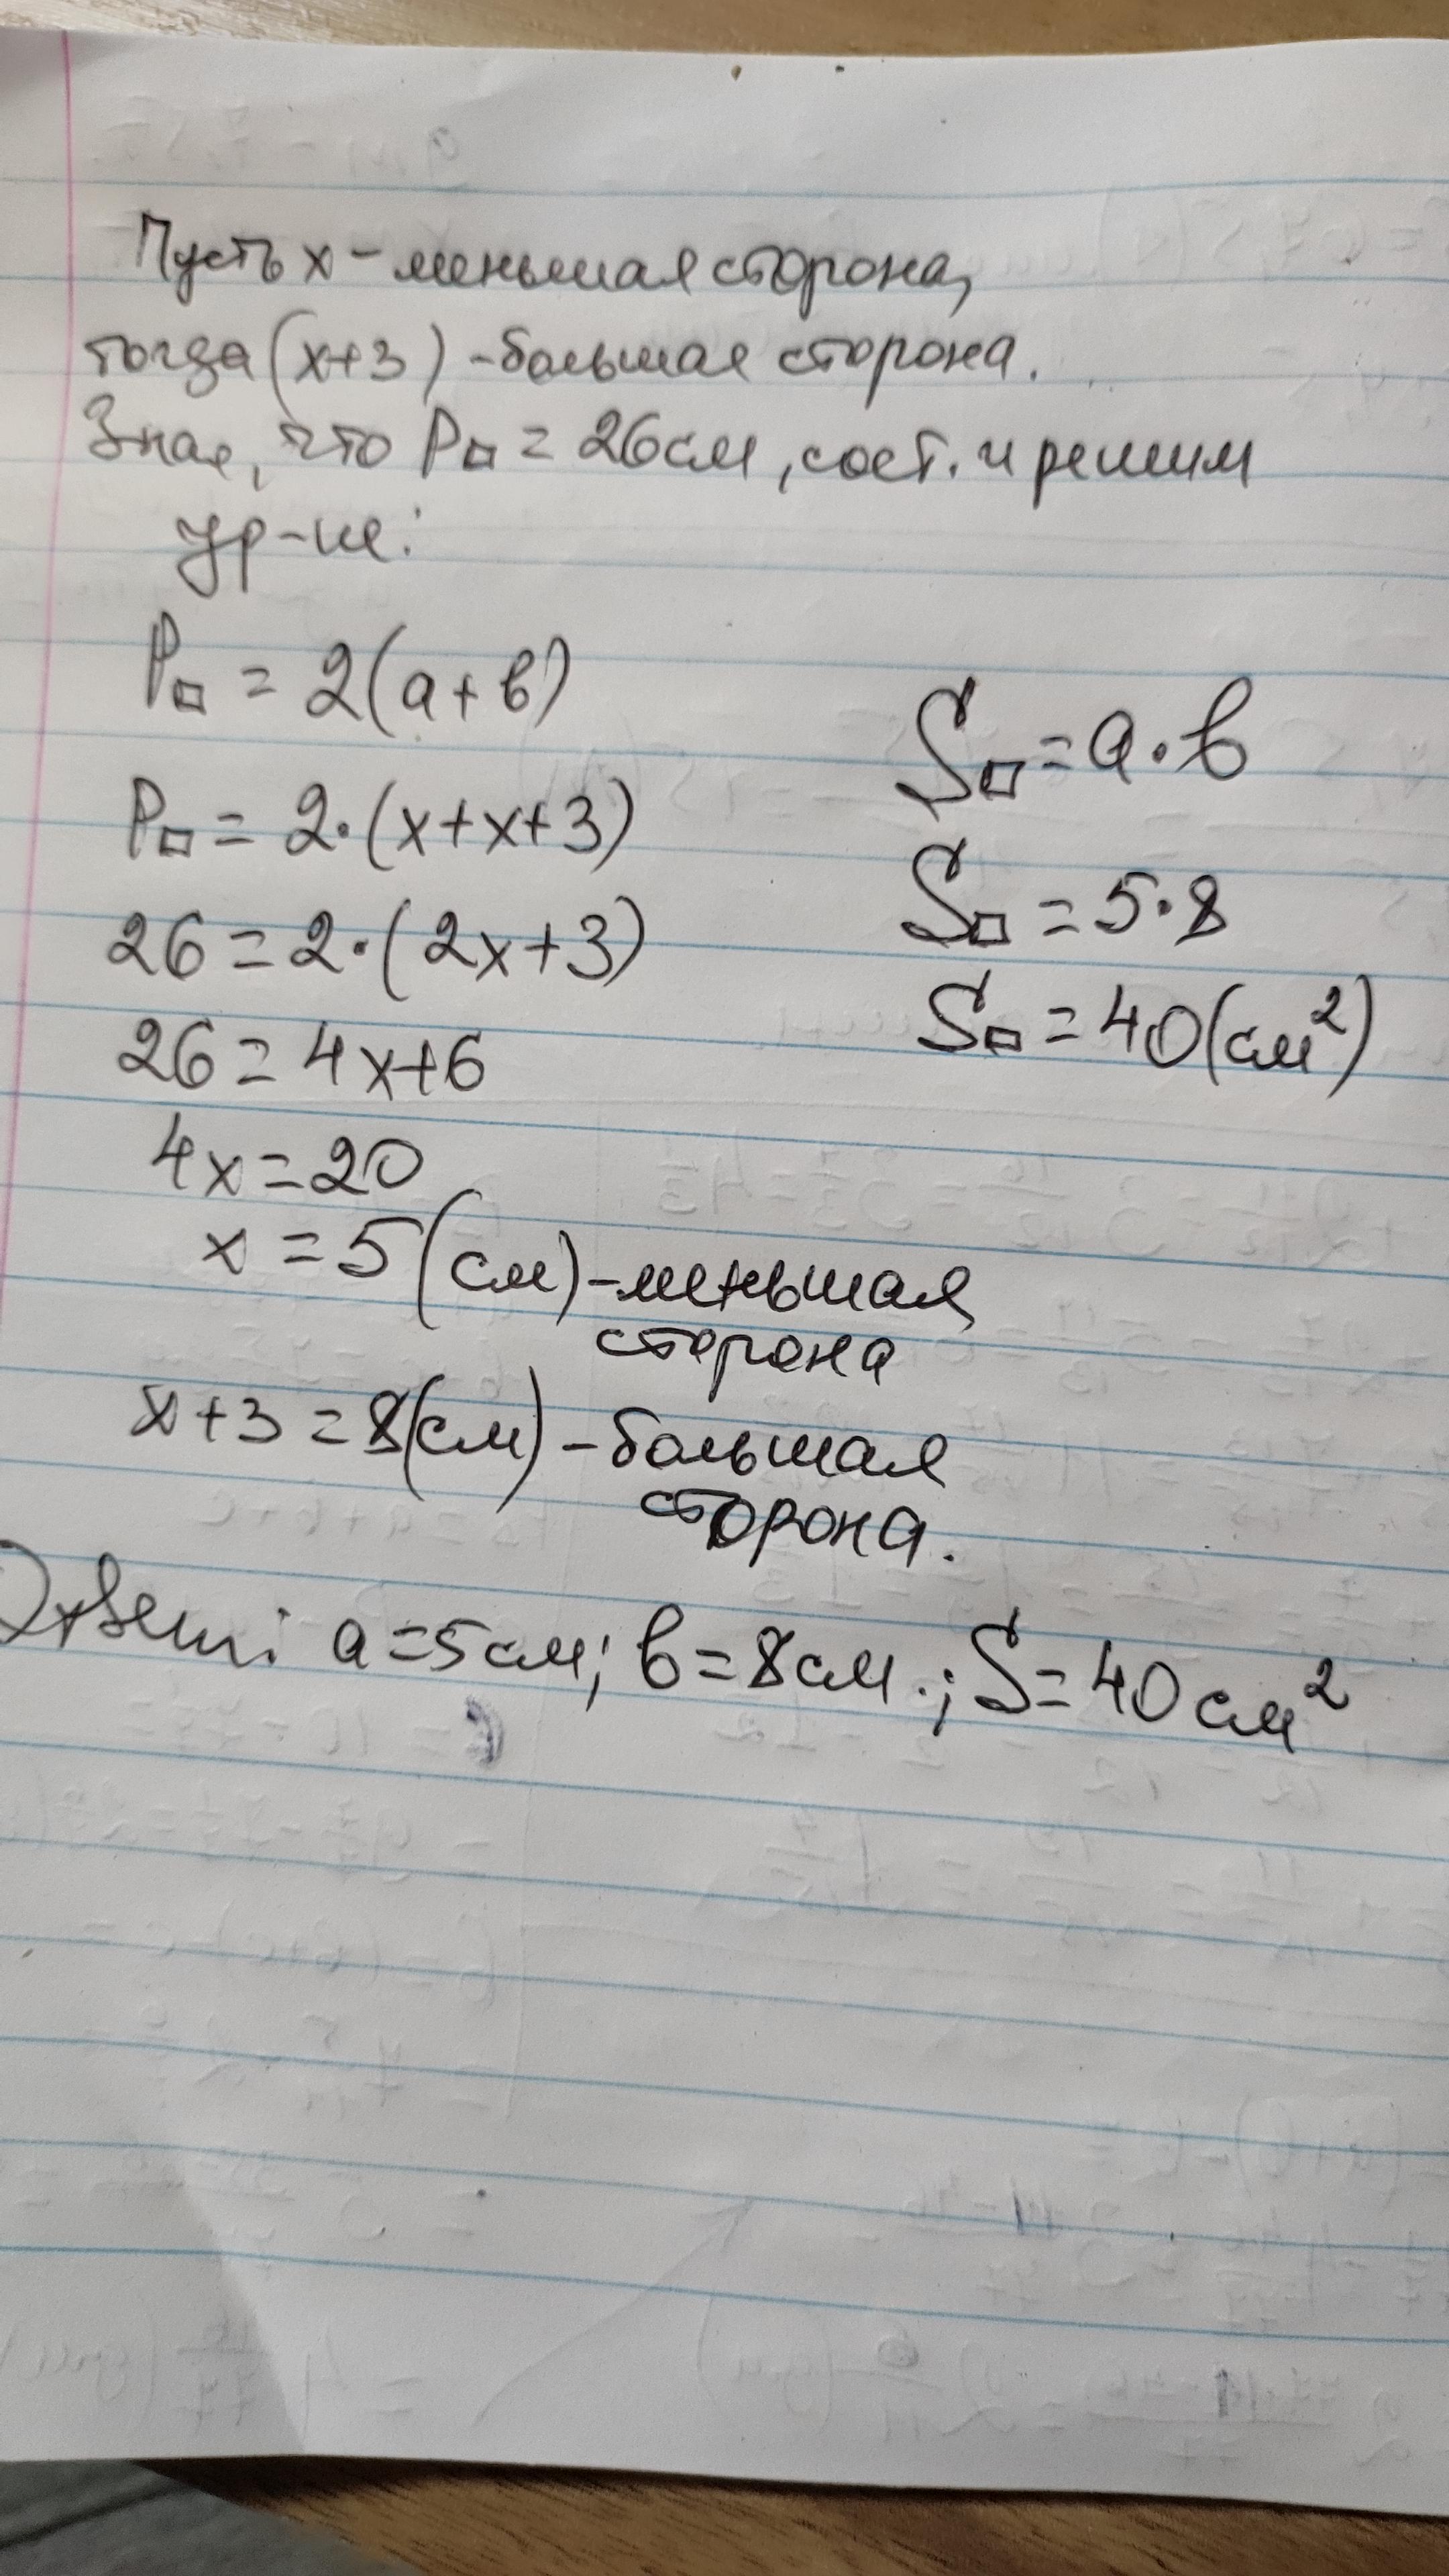 Пусть x - меньшая сторона,
тогда (x+3) - большая сторона.
Зная, что P□ = 26см, сост. и решим
ур-ие:
P□ = 2(a+b)
P□ = 2·(x+x+3)
26 = 2·(2x+3)
26 = 4x+6
4x = 20
x = 5 (см) - меньшая
сторона
x+3 = 8(см) - большая
сторона.
S□ = a·b
S□ = 5·8
S□ = 40(см²)
Ответ: a=5см; b=8см.; S=40см²